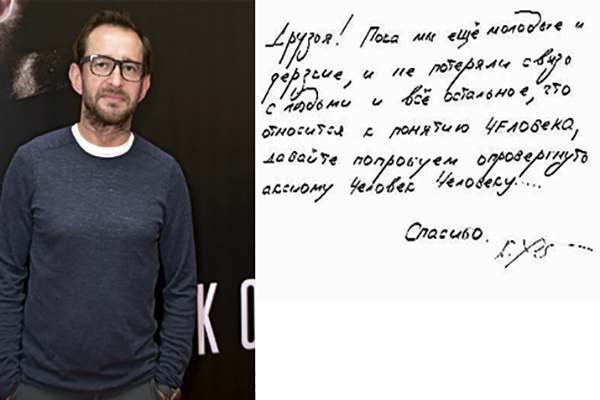 Друзья! Пока мы ещё молодые и
дерзкие, и не потеряли связь
с людьми и всё остальное, что
относится к понятию ЧЕЛовека,
давайте попробуем опровергнуть
аксиому Человек Человеку.....
Спасибо.
К О